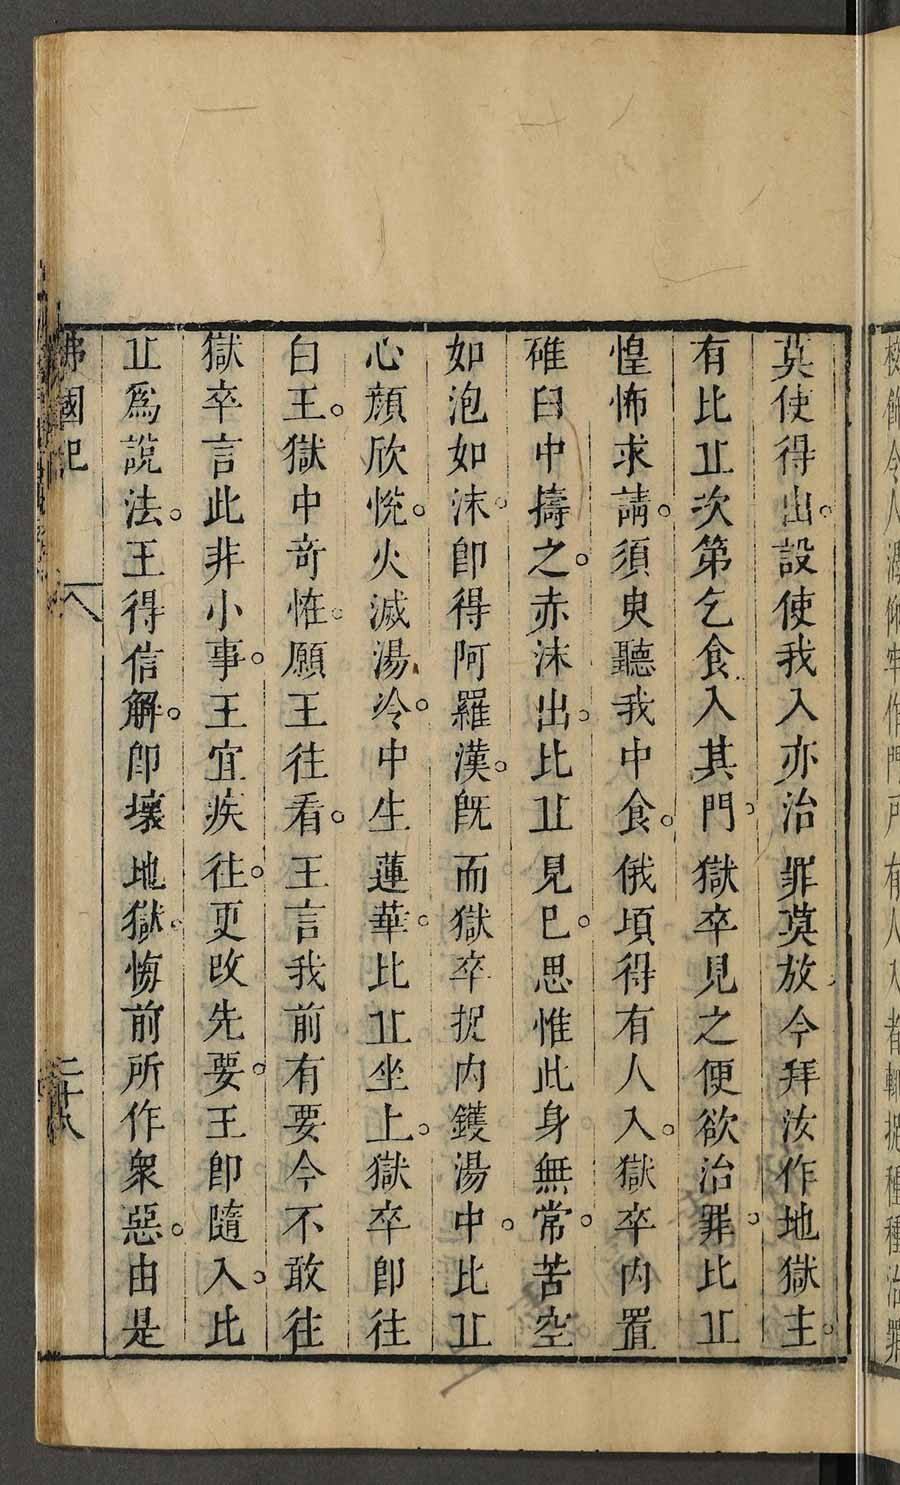 校飾令人渴仰牢作門戶有人入者輙捉種種治罪
莫使得出。設使我入亦治罪莫放今拜汝作地獄主。
有比丘次第乞食入其門。獄卒見之便欲治罪。比丘
惶怖求請。須臾聽我中食。俄頃得有人入。獄卒內置
碓臼中擣之。赤沫出。比丘見已。思惟此身無常。苦空
如泡如沫。卽得阿羅漢。旣而獄卒捉內鑊湯中。比丘
心顏欣悅。火滅湯冷。中生蓮華。比丘坐上。獄卒卽往
白王。獄中奇恠。願王往看。王言我前有要今不敢往
獄卒言此非小事。王宜疾往。更改先要。王卽隨入。比
丘爲說法。王得信解。卽壞地獄。悔前所作衆惡。由是
佛國記
二十八